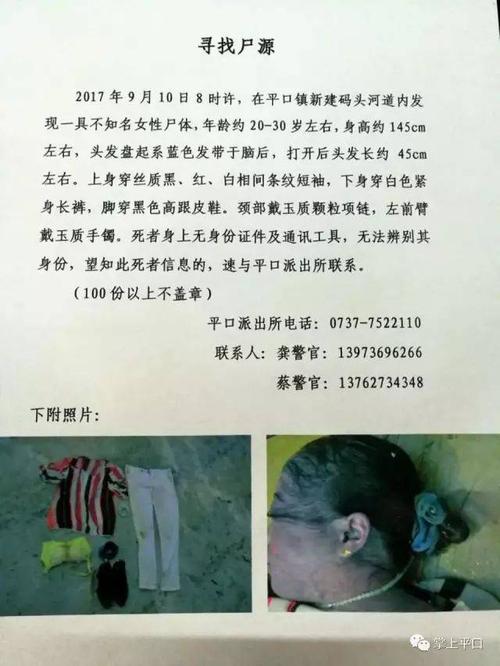 寻找尸源
2017年9月10日8时许，在平口镇新建码头河道内发
现一具不知名女性尸体，年龄约20-30岁左右，身高约145cm
左右，头发盘起系蓝色发带于脑后，打开后头发长约 45cm
左右。上身穿丝质黑、红、白相间条纹短袖，下身穿白色紧
身长裤，脚穿黑色高跟皮鞋。颈部戴玉质颗粒项链，左前臂
戴玉质手镯。死者身上无身份证件及通讯工具，无法辨别其
身份，望知此死者信息的，速与平口派出所联系。
（100份以上不盖章）
平口派出所电话：0737-7522110
联系人：龚警官：13973696266
蔡警官：13762734348
下附照片：
掌上平口